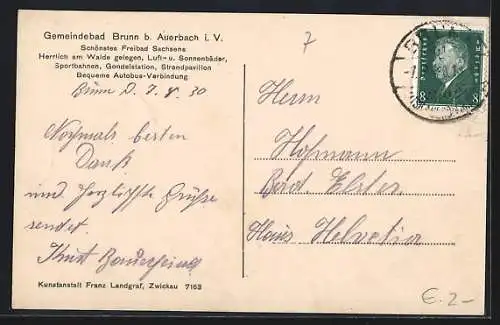 Gemeindebad Brunn b. Auerbach i. V.
Schönstes Freibad Sachsens
Herrlich am Walde gelegen, Luft- u. Sonnenbäder,
Sportbahnen, Gondelstation, Strandpavillon
Bequeme Autobus-Verbindung
Brunn d. 7. 8. 30
Nochmals besten
Dank
und herzlichste Grüße
sendet.
Kurt
Kunstanstalt Franz Landgraf, Zwickau 7163
7
Herrn
Hofmann
Bad Elster
Haus Helvetia
Deutsches Reich
8 8
€ 2-